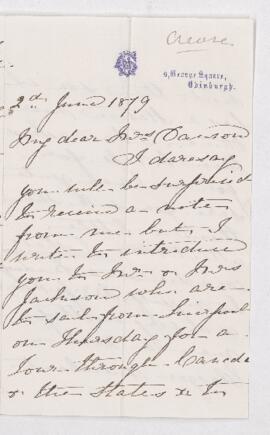 George Square,
Edinburgh.
2nd June 1879
My dear Mrs Dawson
I daresay
you will be surprised
to receive a note
from me but I
write to introduce
you to Mr & Mrs
Jackson who are
to sail from Liverpool
on Thursday for a
tour through Canada
& the States & to